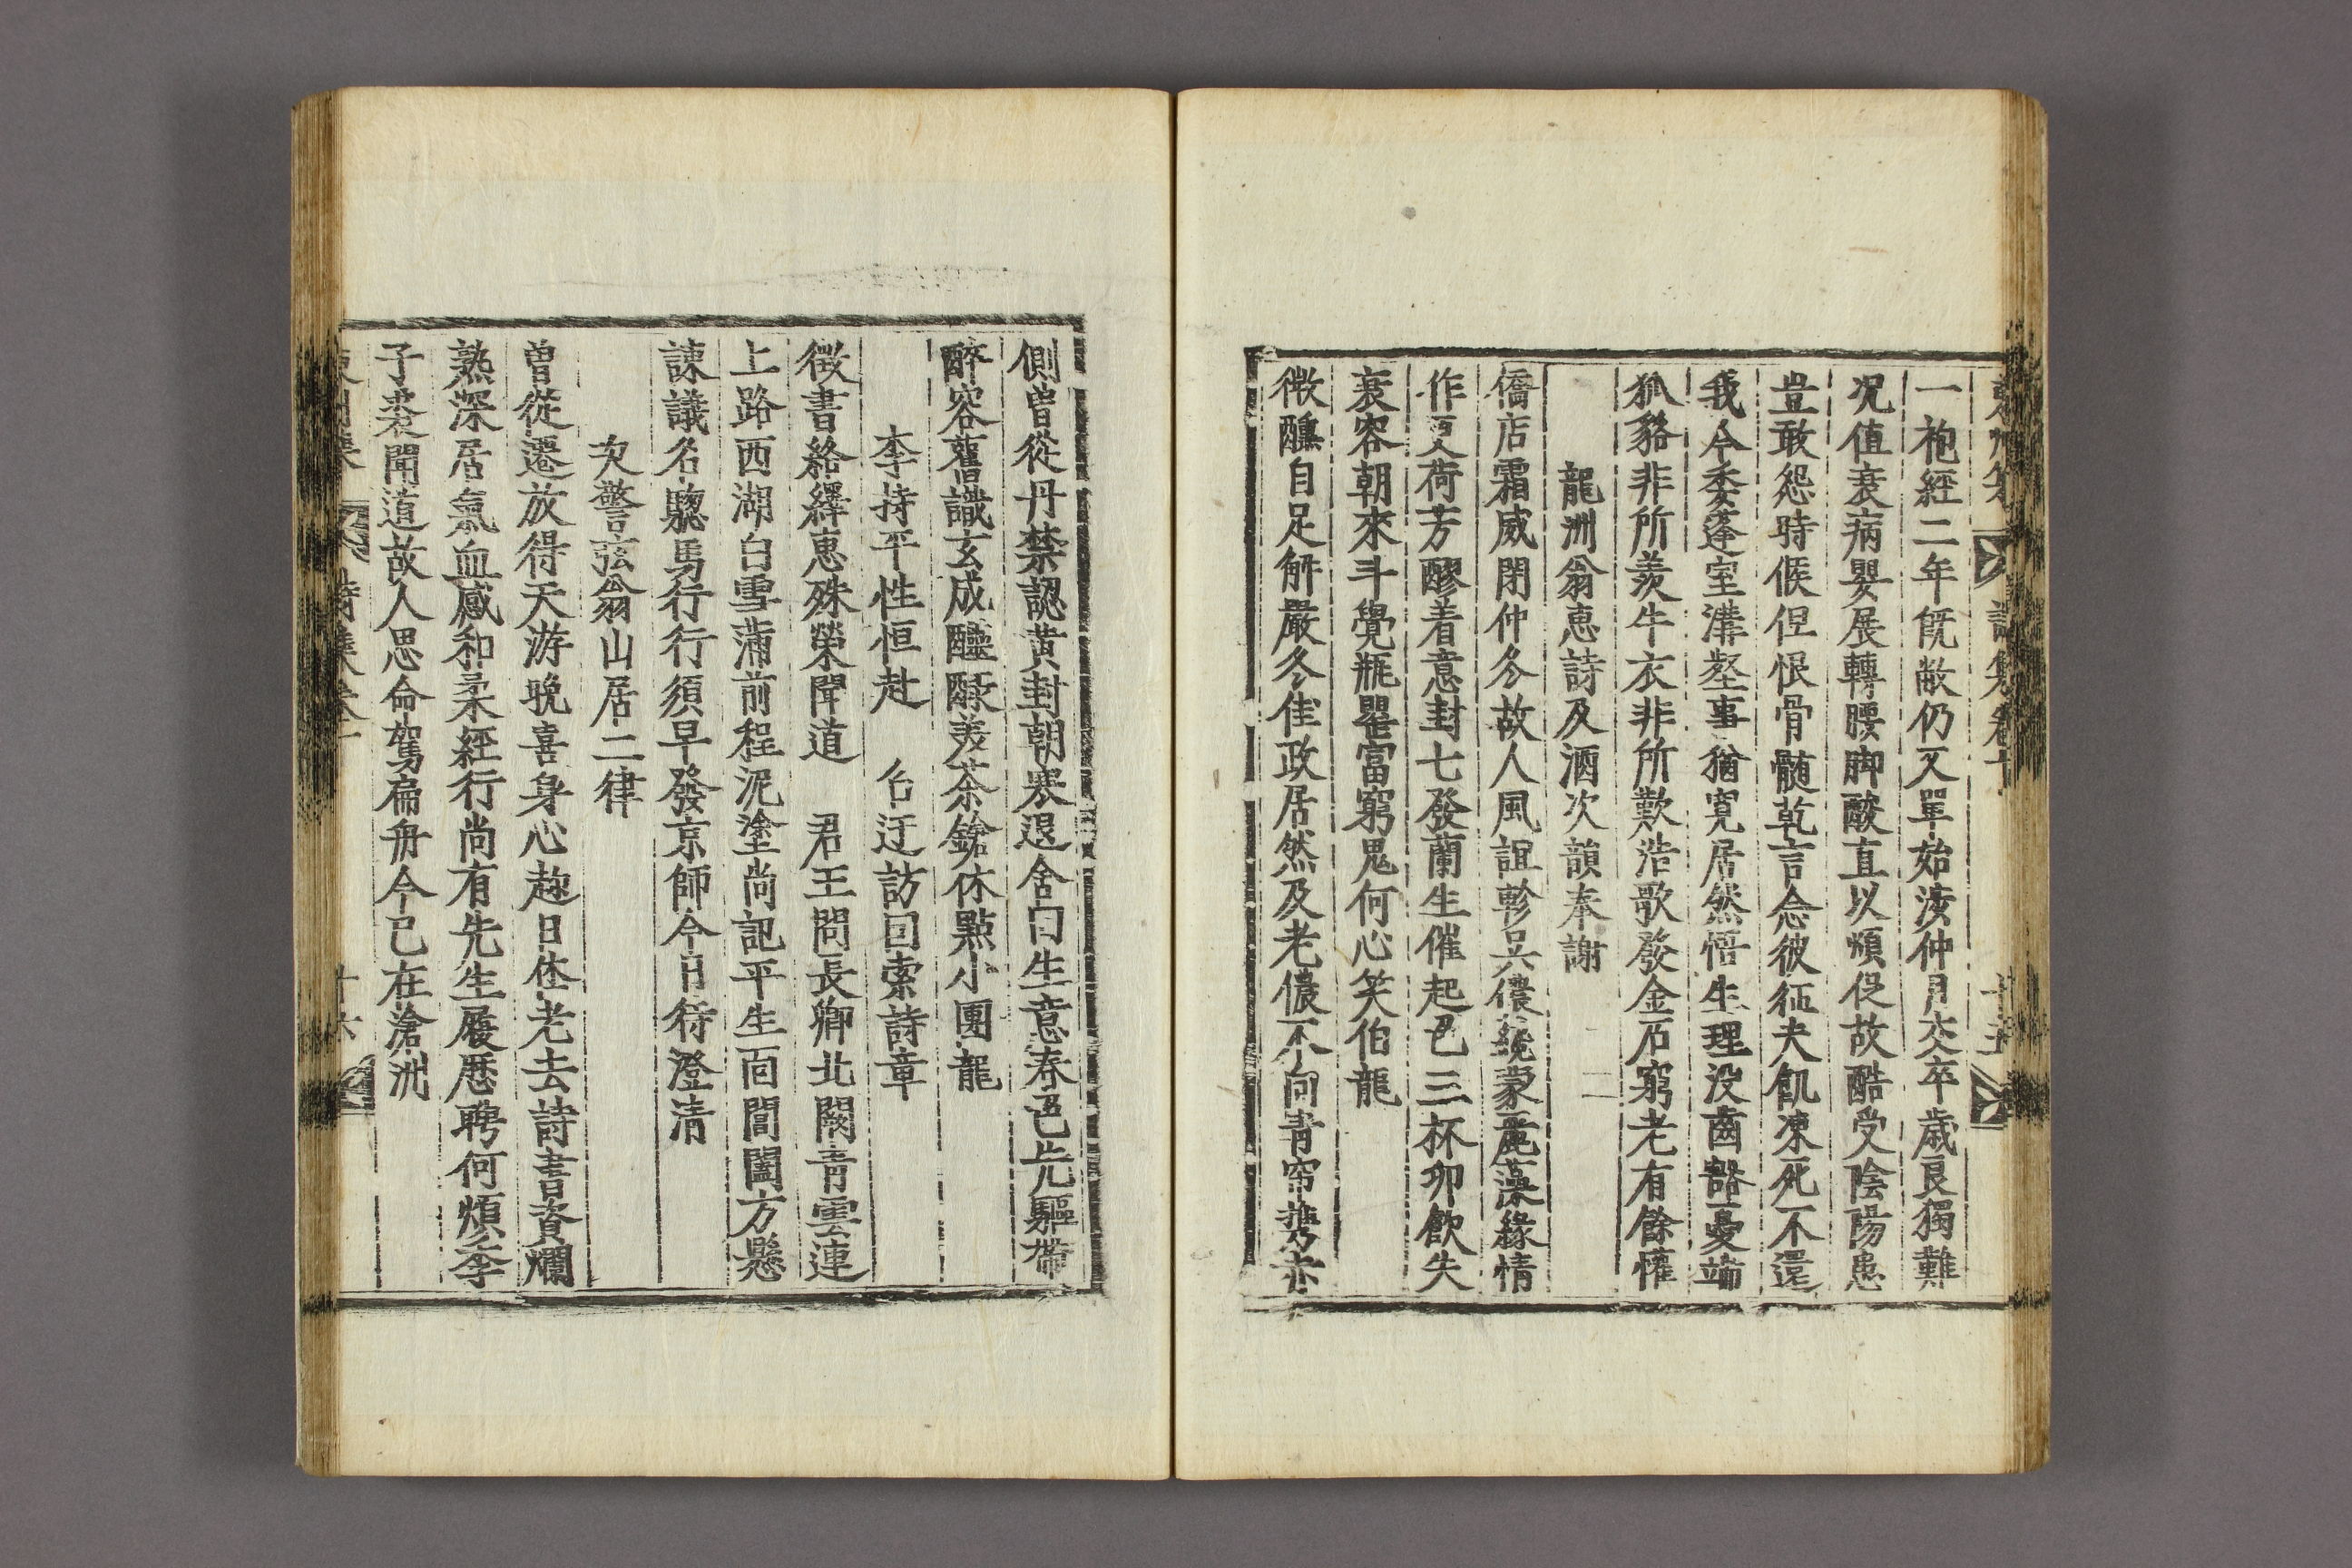 一袍經二年旣敝仍又單始涉仲月交卒歲良獨難
况值衰病嬰展轉腰脚酸直以煩促故酷受陰陽患
豈敢怨時候但恨骨髄乾言念彼征夫飢凍死不還
我今委蓬室溝壑事猶寛居然悟生理没齒豁憂端
狐貉非所羡牛衣非所歎浩歌發金石窮老有餘懽
龍洲翁惠詩及酒次韻奉謝 二
僑店霜威閉仲冬故人風誼軫吳儂纔蒙麗藻緣情
作更荷芳醪着意封七發蘭生催起色三杯卯飮失
衰容朝來斗覺瓶罌富窮鬼何心笑伯龍
微醺自足解嚴冬佳政居然及老儂不向靑帘携赤
側曾從丹禁認黃封朝寒退舍曰生意春色先驅帶
醉容舊識玄成釀醁美茶鎗休點小團龍
李持平性恒赴 台迂訪回索詩章
徴書絡繹惠殊榮聞道 君王問長卿北闕靑雲連
上路西湖白雪滿前程泥塗尙記平生面閶闔方懸
諫議名驄馬行行須早發京師今日待澄淸
次警弦翁山居二律
曾從遷放得天游晩喜身心趂日休老去詩書資爛
熟深居氣血感和柔經行尙有先生屐歷聘何煩季
子裘聞道故人思命駕扁舟今已在滄洲
十六